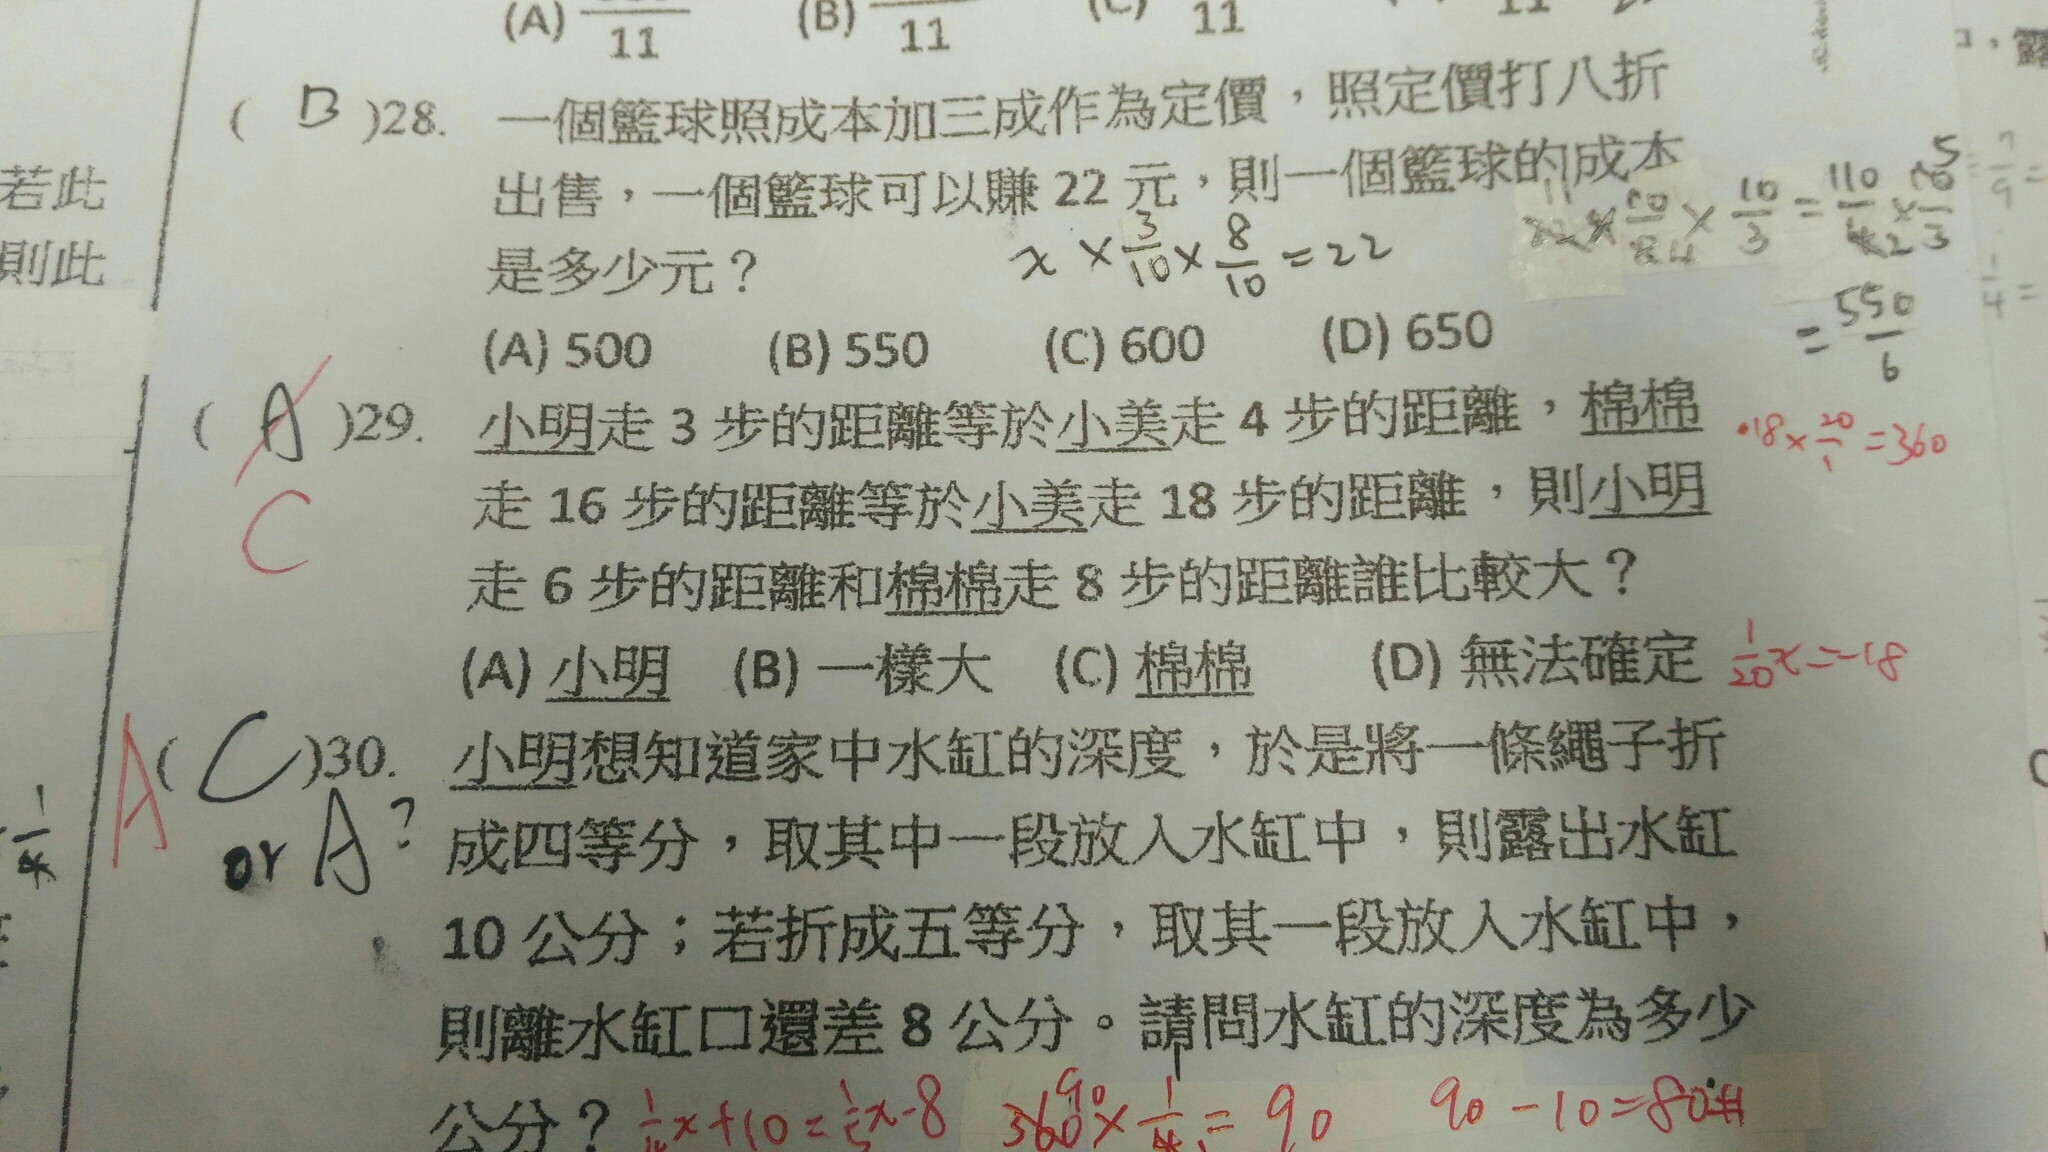 (A) 11 (B) 11 11 11
( B )28. 一個籃球照成本加三成作為定價，照定價打八折
出售，一個籃球可以賺 22 元，則一個籃球的成本
是多少元？
x × 3/10 × 8/10 = 22
× 10/3 = 110
= 550/6
(A) 500 (B) 550 (C) 600 (D) 650
( A )29. 小明走 3 步的距離等於小美走 4 步的距離，棉棉
C
走 16 步的距離等於小美走 18 步的距離，則小明
走 6 步的距離和棉棉走 8 步的距離誰比較大？
(A) 小明 (B) 一樣大 (C) 棉棉 (D) 無法確定
18 × 20/1 = 360
1/20 x = -18
A ( C )30. 小明想知道家中水缸的深度，於是將一條繩子折
or A ?
成四等分，取其中一段放入水缸中，則露出水缸
10 公分；若折成五等分，取其一段放入水缸中，
則離水缸口還差 8 公分。請問水缸的深度為多少
公分？
1/4 x + 10 = 1/5 x - 8
360 × 1/4 = 90
90
90 - 10 = 80
若此
則此
7/9 =
1/4 =